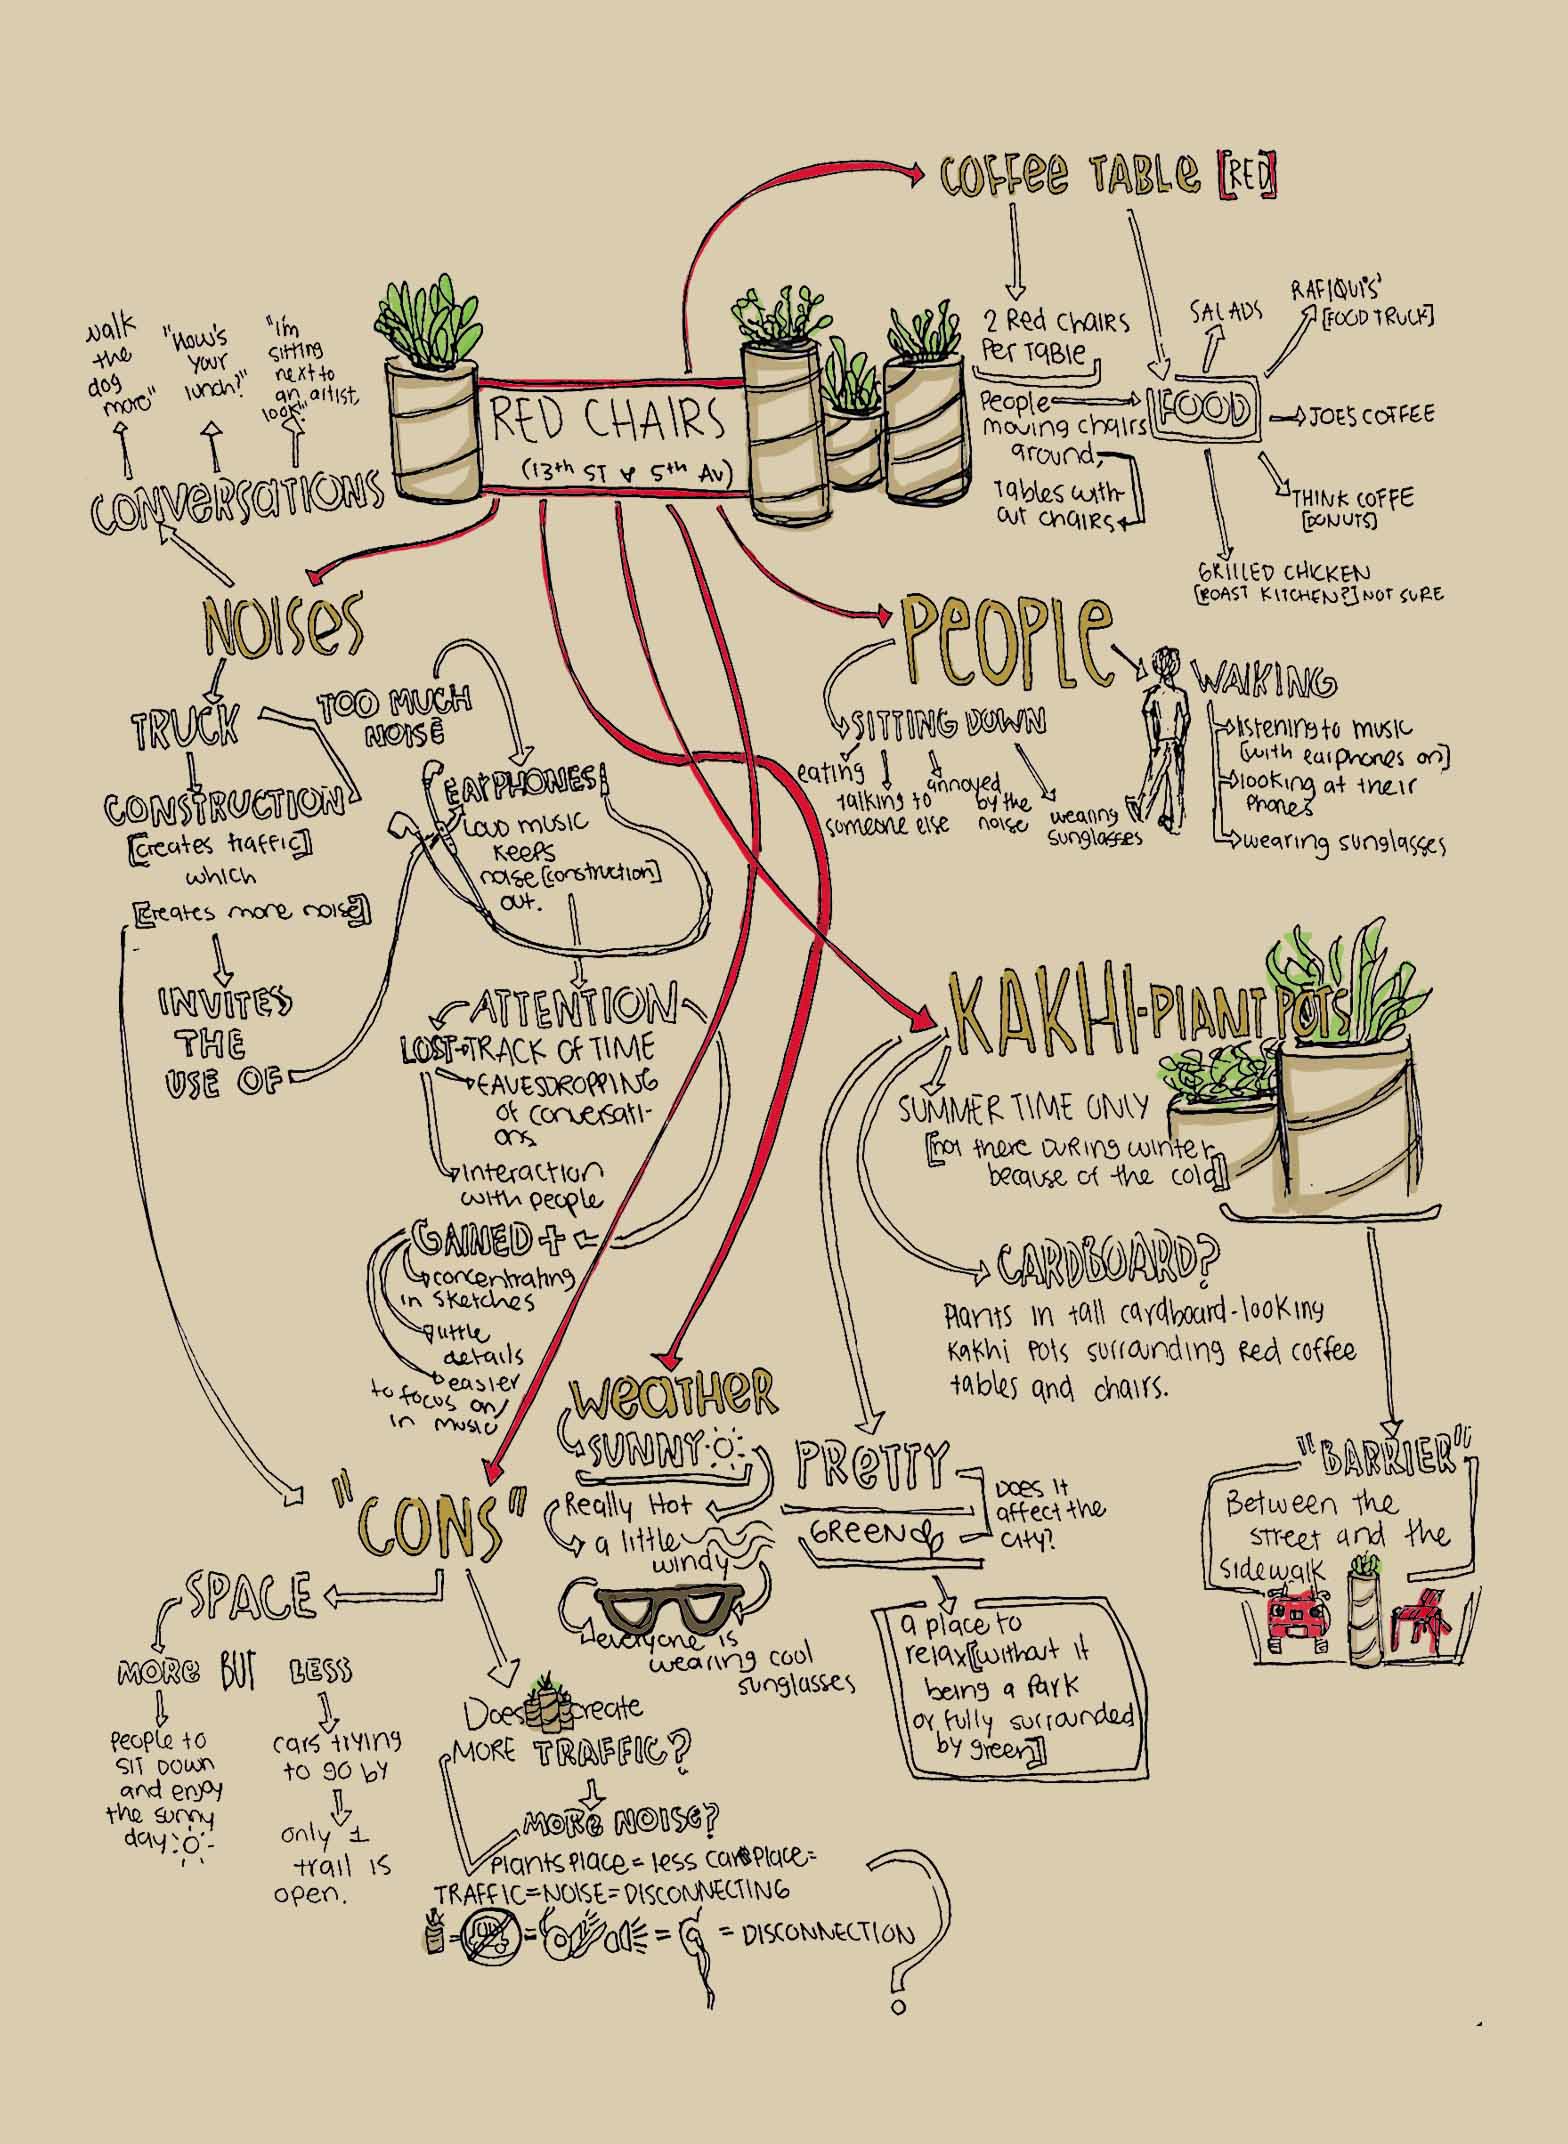 COFFEE TABLE [RED]
2 Red chairs
Per TABLE
People
moving chairs
around,
TABLES with-
out chairs
FOOD
SALADS
RAFIQUI'S'
[FOOD TRUCK]
JOES COFFEE
THINK COFFE
[DONUTS]
GRILLED CHICKEN
[ROAST KITCHEN?] NOT SURE
RED CHAIRS
(13th ST & 5th AV)
walk
the
dog
more"
"How's
your
lunch?"
"I'm
sitting
next to
an artist,
look"
CONVERSATIONS
NOISES
TRUCK
CONSTRUCTION
[creates traffic]
which
[creates more noise]
INVITES
THE
USE OF
TOO MUCH
NOISE
EARPHONES
LOUD MUSIC
KEEPS
noise [construction]
out.
ATTENTION
LOST
TRACK OF TIME
EAVESDROPPING
of conversati-
ons
interaction
with people
GAINED +
concentrating
in sketches
little
details
easier
to focus on/
in music
PEOPLE
SITTING DOWN
eating
talking to
someone else
annoyed
by the
noise
wearing
sunglasses
WALKING
listening to music
[with earphones on]
looking at their
phones
wearing sunglasses
KAKHI-PLANT POTS
SUMMER TIME ONLY
[not there DURING winter
because of the cold]
CARDBOARD?
Plants in tall cardboard-looking
Kakhi Pots surrounding Red coffee
tables and chairs.
PRETTY
GREEN
DOES IT
affect the
city?
a place to
relax [without it
being a Park
or fully surrounded
by green]
"BARRIER"
Between the
street and the
sidewalk
WEATHER
SUNNY
Really Hot
a little
windy
everyone is
wearing cool
sunglasses
"CONS"
SPACE
MORE BUT LESS
People to
SIT DOWN
and enjoy
the sunny
day
cars trying
to go by
only 1
trail is
open.
Does create
MORE TRAFFIC?
MORE NOISE?
Plants Place = less cars Place =
TRAFFIC = NOISE = DISCONNECTING
= = = = DISCONNECTION
?